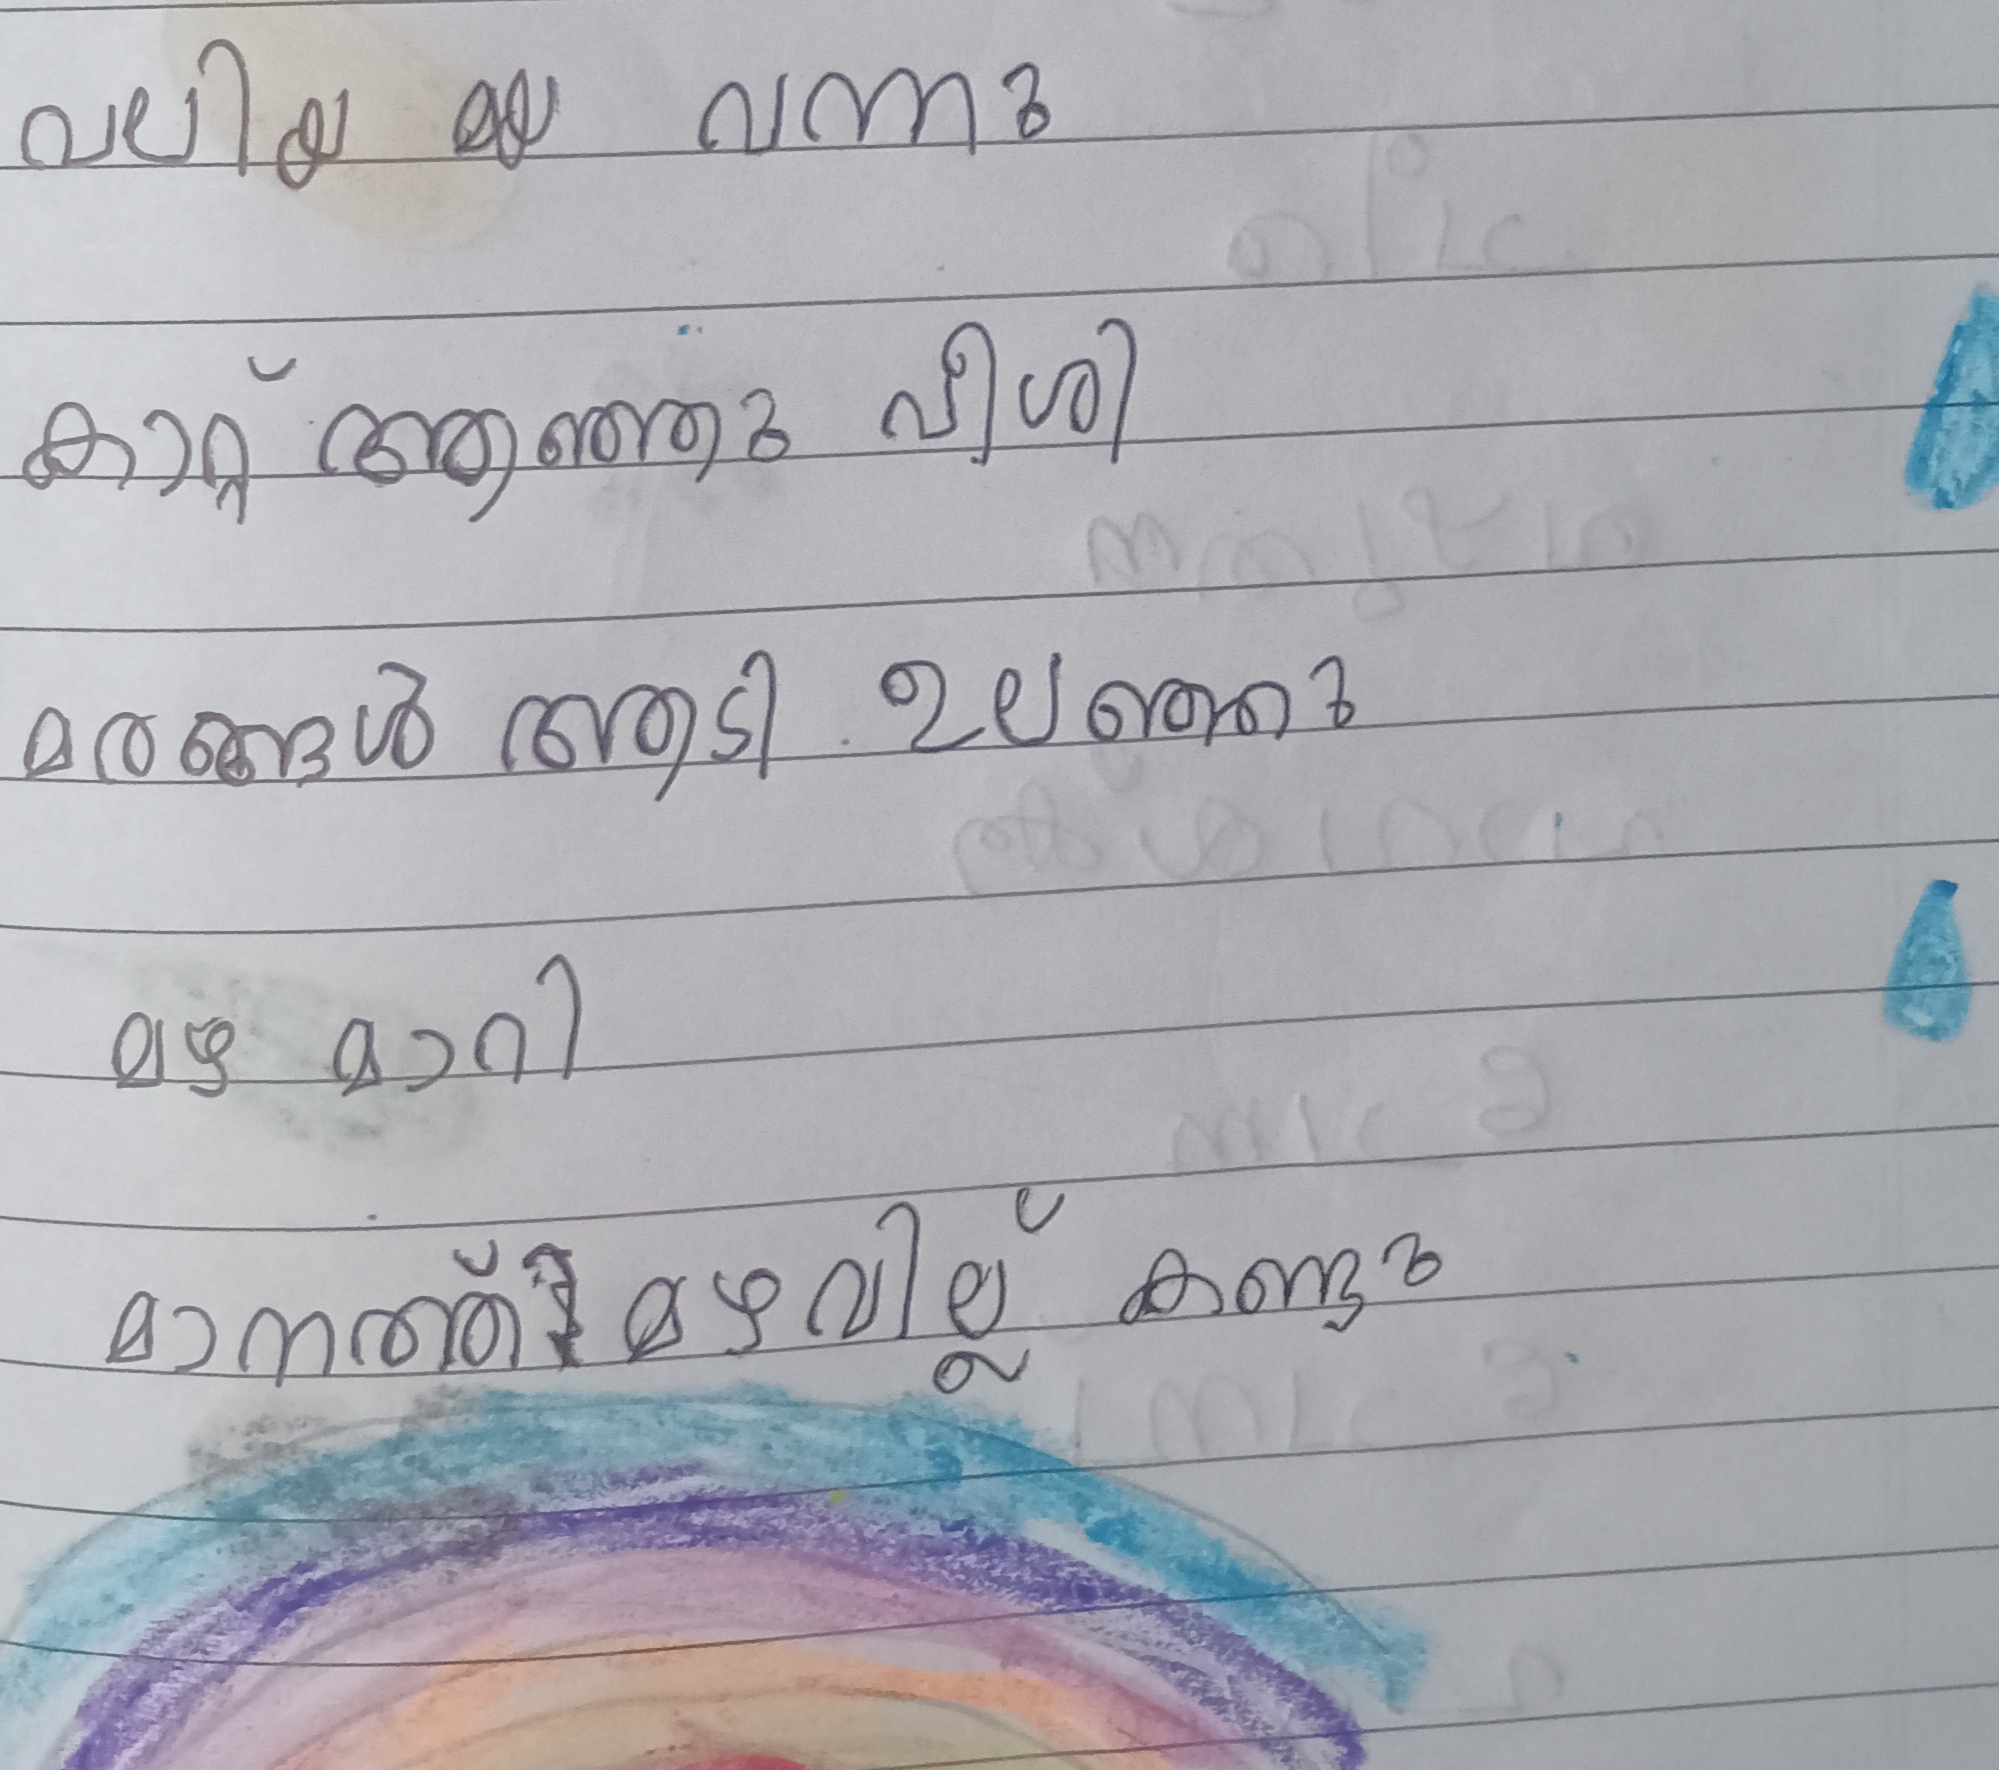 വലിയ മഴ വന്നു
കാറ്റ് ആഞ്ഞു വീശി
മരങ്ങൾ ആടി ഉലഞ്ഞു
മഴ മാറി
മാനത്ത് മഴവില്ല് കണ്ടു